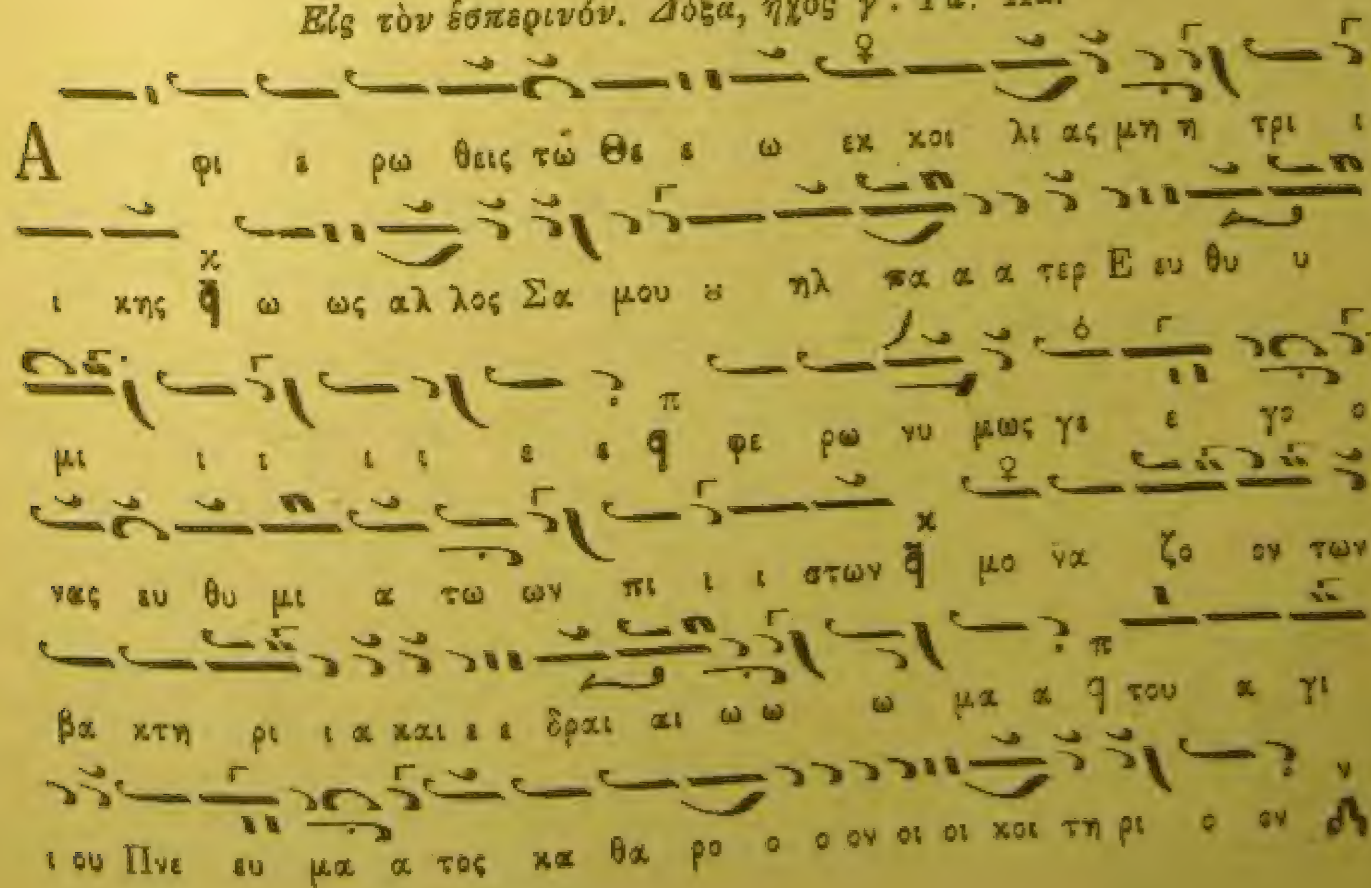 Εἰς τὸν ἑσπερινόν. Δόξα, ἦχος γ΄. Γα. Πα.
Α φι ε ρω θεις τῷ Θε ε ω εκ κοι λι ας μη η τρι ι
ι κης ω ως αλ λος Σα μου ου ηλ πα α α τερ Ε ευ θυ υ
μι ι ι ι ι ε ε φε ρω νυ μως γε ε γο ο
νας ευ θυ μι α τω ων πι ι ι στων μο να ζο ον των
βα κτη ρι ι α και ε ε δραι αι ω ω ω μα α του α γι
ι ου Πνε ευ μα α τος κα θα ρο ο ο ον οι οι κοι τη ρι ο ον